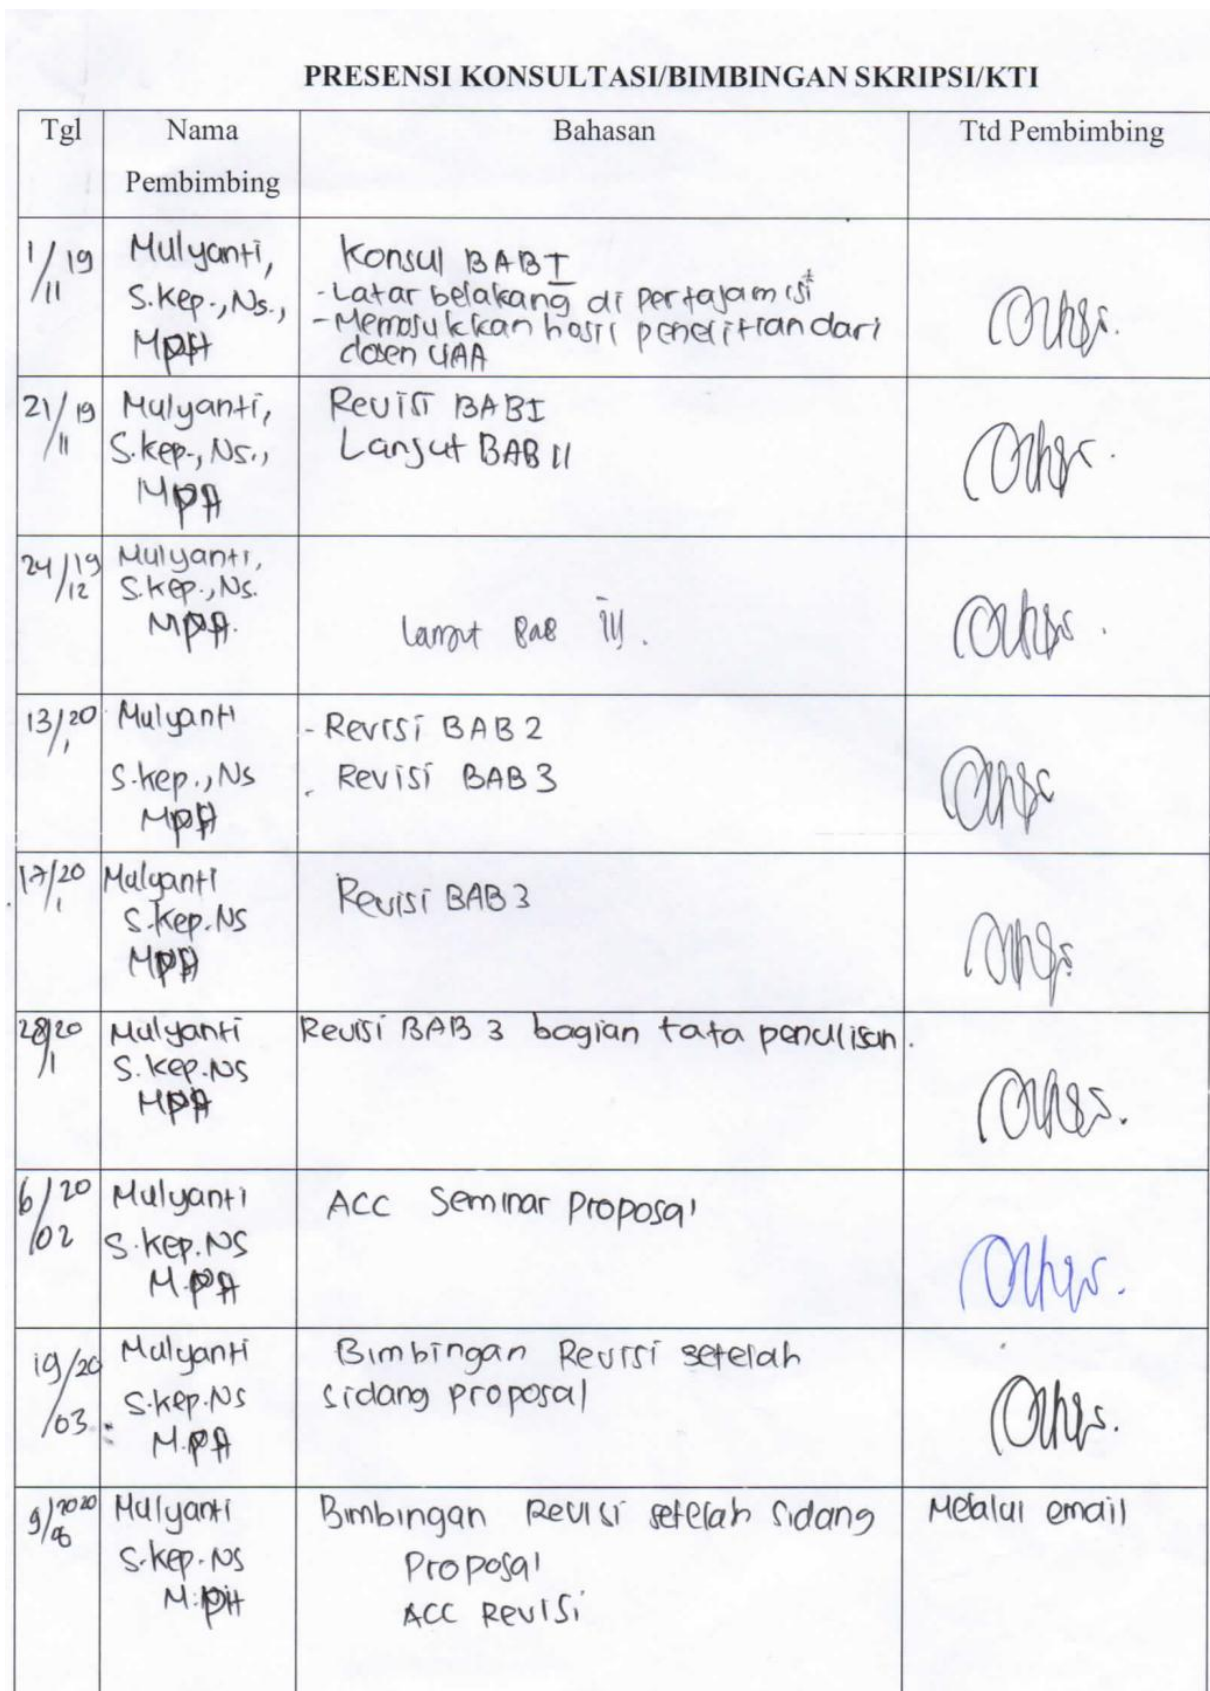 PRESENSI KONSULTASI/BIMBINGAN SKRIPSI/KTI
Tgl
Nama
Pembimbing
Bahasan
Ttd Pembimbing
1/11 19
Mulyanti,
S.Kep., Ns.,
MPH
Konsul BAB I
- Latar belakang di pertajam isi
- Memasukkan hasil penelitian dari
dosen UAA
21/11 19
Mulyanti,
S.Kep., Ns.,
MPH
Revisi BAB I
Lanjut BAB II
24/12 19
Mulyanti,
S.Kep., Ns.
MPH.
Lanjut Bab III.
13/1 20
Mulyanti
S.Kep., Ns
MPH
- Revisi BAB 2
. Revisi BAB 3
17/1 20
Mulyanti
S.Kep.Ns
MPH
Revisi BAB 3
28/1 20
Mulyanti
S.Kep.Ns
MPH
Revisi BAB 3 bagian tata penulisan.
6/02 20
Mulyanti
S.Kep.NS
M.PH
ACC Seminar Proposal
19/03 20
Mulyanti
S.Kep.NS
M.PH
Bimbingan Revisi setelah
sidang proposal
9/06 2020
Mulyanti
S.Kep.NS
M.PH
Bimbingan Revisi setelah sidang
Proposal
ACC Revisi
Melalui email